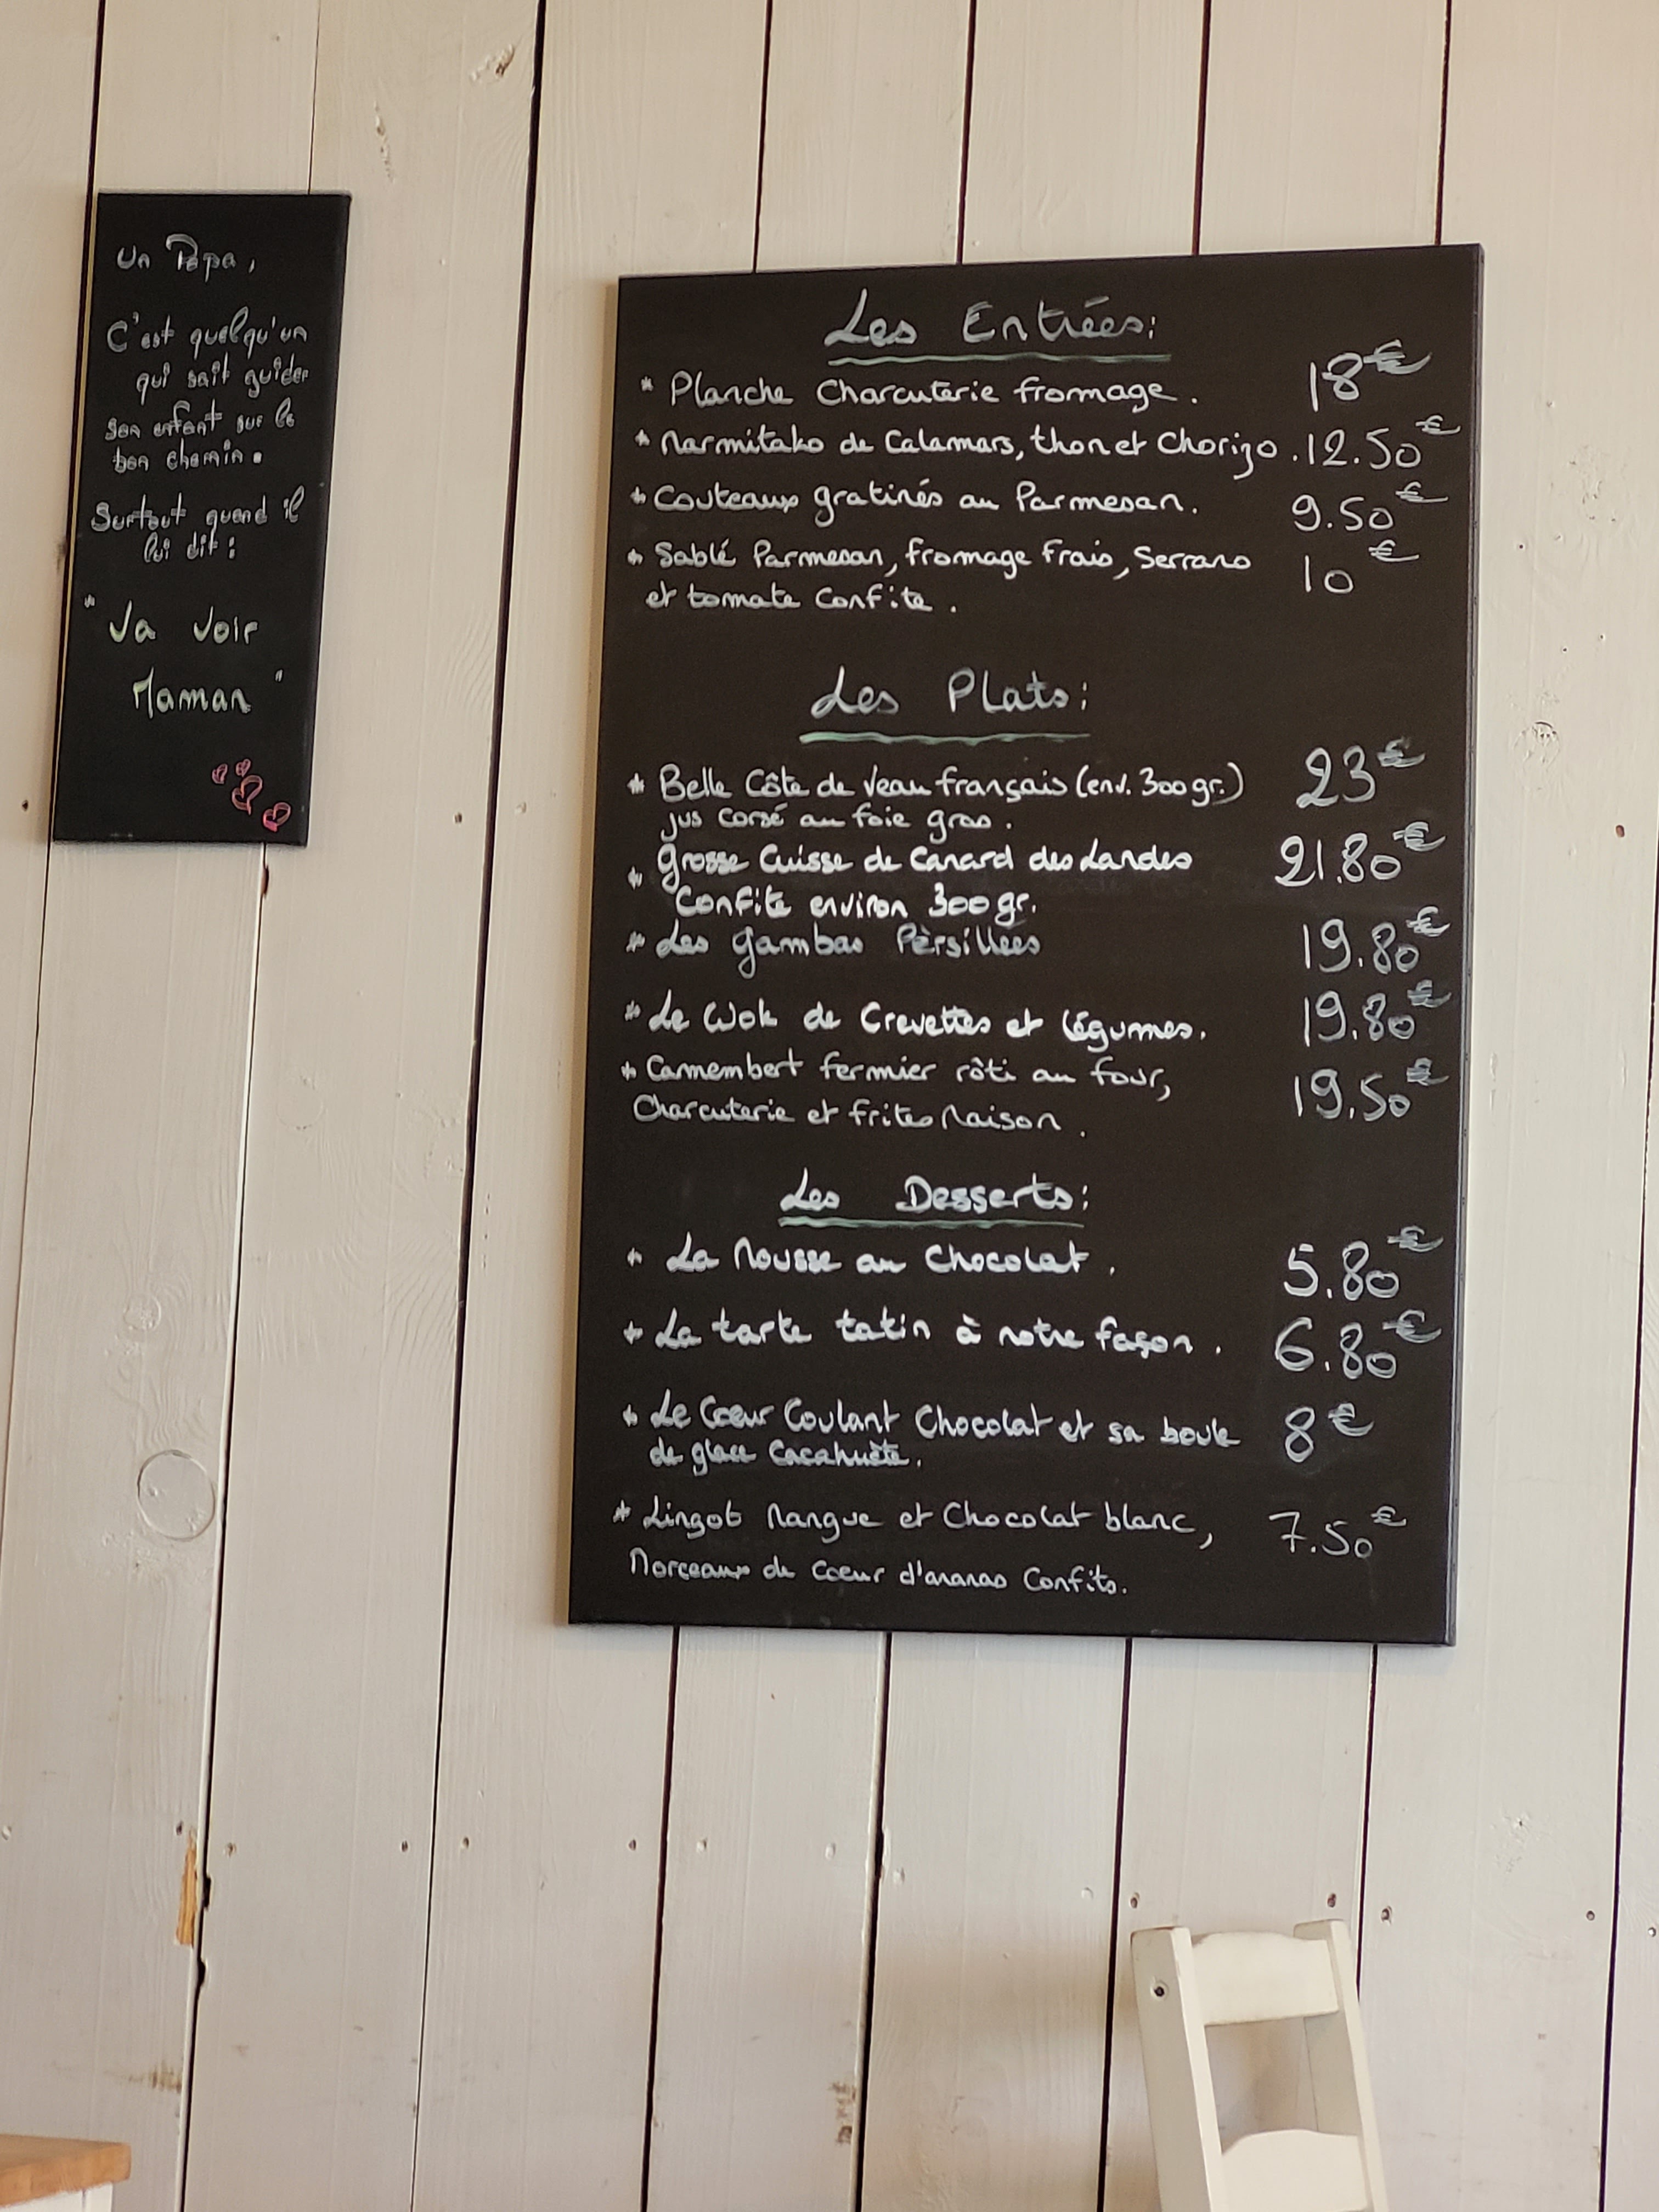 Un Papa,
C'est quelqu'un
qui sait guider
son enfant sur le
bon chemin.
Surtout quand il
lui dit :
"Va voir
Maman"
Les Entrées:
* Planche Charcuterie fromage. 18€
* Marmitako de Calamars, thon et Chorizo. 12.50€
* Couteaux gratinés au Parmesan. 9.50€
* Sablé Parmesan, fromage frais, Serrano 10€
et tomate Confite.
Les Plats:
* Belle Côte de Veau français (env. 300gr.) 23€
jus corsé au foie gras.
* Grosse Cuisse de Canard des Landes 21.80€
Confite environ 300gr.
* Les gambas Pèrsillées 19.80€
* Le Wok de Crevettes et légumes. 19.80€
* Camembert fermier rôti au four, 19.50€
Charcuterie et frites Maison.
Les Desserts:
* La Mousse au Chocolat. 5.80€
* La tarte tatin à notre façon. 6.80€
* Le Cœur Coulant Chocolat et sa boule 8€
de glace Cacahuète.
* Lingot Mangue et Chocolat blanc, 7.50€
Morceaux de Coeur d'ananas Confits.